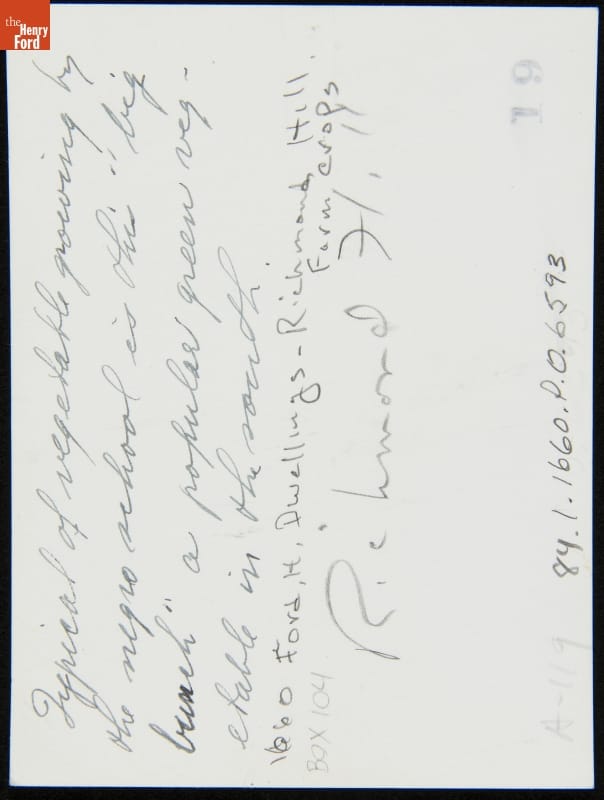 the
Henry
Ford
Typical of vegetable growing by
the negro school is this "big
bunch" a popular green veg-
etable in the south
1660 Ford, H. Dwellings - Richmond Hill.
Farm crops
BOX 104
Richmond H.
84.1.1660.P.O.6593
A-119
19